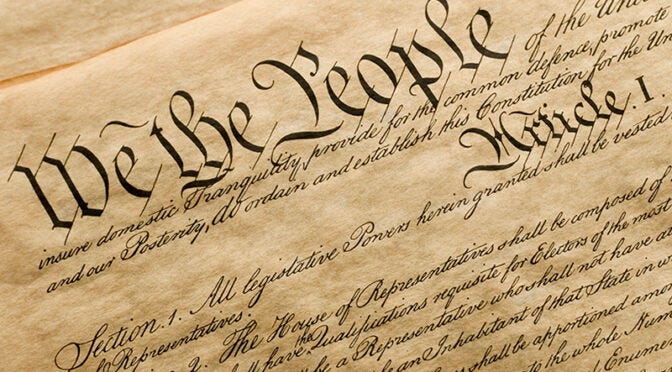 We the People of the Unit
insure domestic Tranquility, provide for the common defence, promote
and our Posterity, do ordain and establish this Constitution for the Un
Article. I.
Section. 1. All legislative Powers herein granted shall be vested
of Representatives.
2. The House of Representatives shall be composed of
shall have the Qualifications requisite for Electors of the most
be a Representative who shall not have at
an Inhabitant of that State in w
shall be apportioned amon
to the whole Num
Enumer